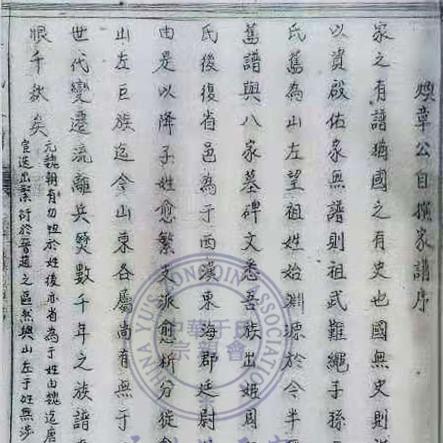 煥章公自撰家譜序
家之有譜猶國之有史也國無史則
以資啟佑家無譜則祖武難繩手孫
氏舊為山左望祖姓始淵源於今半
舊譜與八家墓碑文悉吾族出姬周
氏後復省邑為于西漢東海郡廷尉
由是以降子姓愈繁支派愈析分徙
山左巨族迄今山東各屬尚有無于
世代變遷流離兵燹數千年之族譜
恨千秋矣
元魏朝有勿忸于姓後亦省為于姓由魏迄唐
宦迹出繁衍於晉趙之區然與山左于姓無涉
CHINA YU'S CONGQIN ASSOCIATION
中華于氏
宗親會